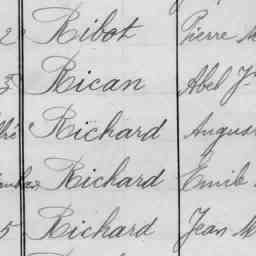 2 Ribot Pierre M
5 Rican Abel J
Richard August
Richard Emile
5 Richard Jean M